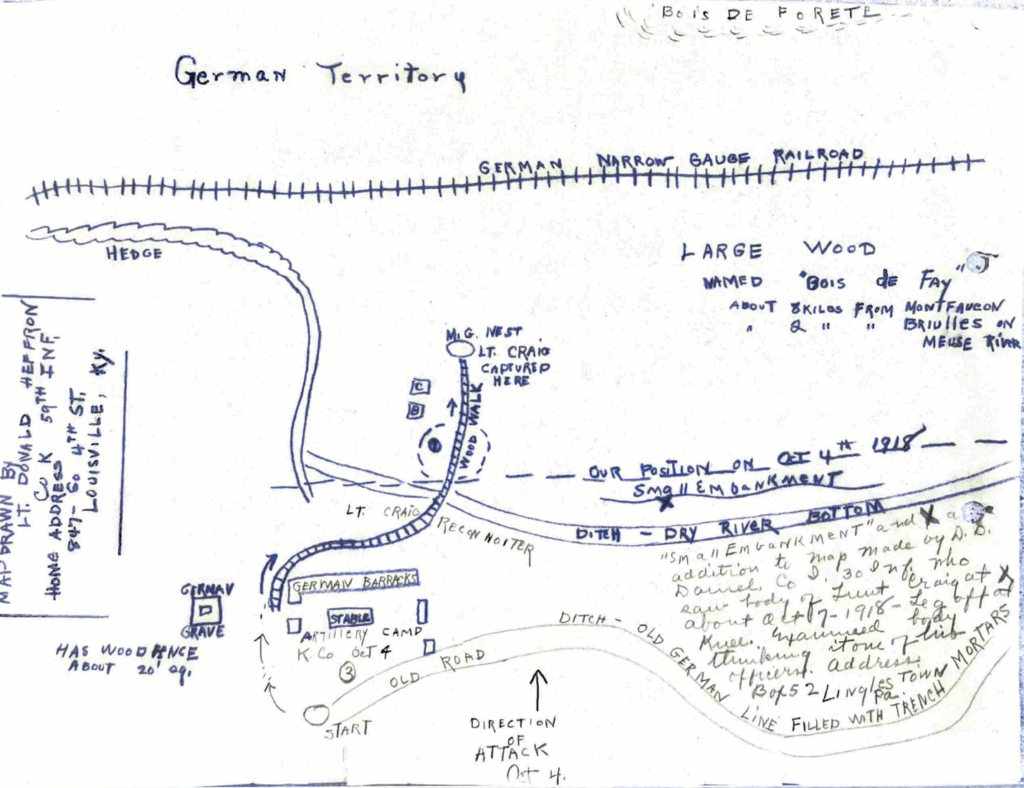 BOIS DE FORETE
German Territory
GERMAN NARROW GAUGE RAILROAD
HEDGE
LARGE WOOD
NAMED "BOIS de FAY"
ABOUT 8 KILOS FROM MONTFAUCON
" 2 " " BRIULLES ON
MEUSE RIVER
MAP DRAWN BY
LT. DONALD HEFFRON
CO K 59TH INF,
HOME ADDRESS
847-SO 4TH ST,
LOUISVILLE, KY.
M.G. NEST
LT. CRAIG
CAPTURED
HERE
C
B
WOOD WALK
OUR POSITION ON OCT 4TH 1918
SMALL EMBANKMENT
X
DITCH - DRY RIVER BOTTOM
LT. CRAIG RECONNOITER
"SMALL EMBANKMENT" and X as
addition to map made by D.D.
Daniel, Co I, 30 Inf, who
saw body of Lieut Craig at X
about Oct 7-1918 - Leg off at
Knee. Examined body
thinking it one of his
officers. Address
Box 52 Linglestown
Pa.
GERMAN BARRACKS
STABLE
ARTILLERY CAMP
K. Co Oct 4
3
GERMAN
GRAVE
HAS WOOD FENCE
ABOUT 20' sq.
START
OLD ROAD
DITCH - OLD GERMAN LINE FILLED WITH TRENCH MORTARS
DIRECTION
OF
ATTACK
Oct 4.